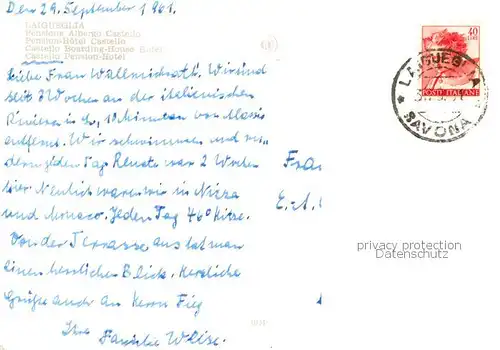 Den 29. September 1961.
LAIGUEGLIA
Pensione Albergo Castello
Pension-Hôtel Castello
Castello Boarding-House Hotel
Castello Pension-Hotel
Liebe Frau Wir sind
seit 3 Wochen an der italienischen
Riviera in L, 10 Minuten von Alassio
entfernt. Wir schwimmen und ru-
dern jeden Tag. Renate war 2 Wochen
hier. Neulich waren wir in Nizza
und Monaco. Jeden Tag 40° Hitze.
Von der Terrasse aus hat man
einen herrlichen Blick. Herzliche
Grüße auch an Herrn Fieg
Ihre Familie Weise.
40
LIRE
POSTE ITALIANE
LAIGUEGLIA
* SAVONA
Frau
E.
privacy protection
Datenschutz